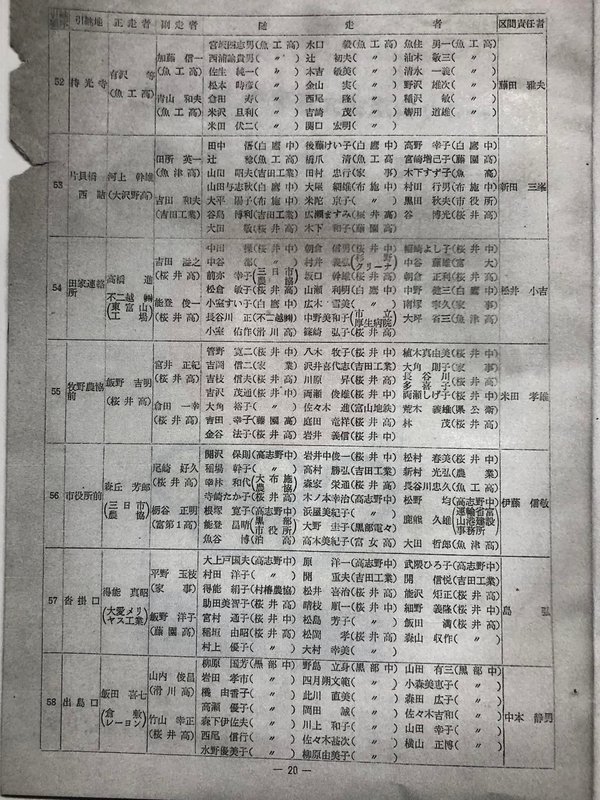 引継順序 引継地 正走者 副走者 随走者 区間責任者
52 持光寺 有沢 等(魚工高) 加藤 信一(魚工高) 青山 和夫(魚工高) 藤田 雅夫
宮坂四志男(魚工高) 水口 毅(魚工高) 魚住 勇一(魚工高)
西浦諭貴男(〃) 辻 初夫(〃) 油木 敬三(〃)
佐生 純一(〃) 木吉 敏美(〃) 清水 一義(〃)
松本 時彦(〃) 金山 実(〃) 野沢 雄次(〃)
倉田 寿(〃) 西尾 隆(〃) 稲沢 敏(〃)
米沢 且利(〃) 吉崎 茂(〃) 柳用 道雄(〃)
米田 伏二(〃) 関口 宏明(〃)
53 片貝橋西詰 河上 幹雄(大沢野高) 田所 英一(魚津高) 吉田 和夫(吉田工業) 新田 三峯
田中 悟(白鷹中) 後藤けい子(白鷹中) 高野 幸子(白鷹中)
辻 稔(魚工高) 橋爪 清(魚工高) 宮崎増己子(藤園高)
山田 昭夫(吉田工業) 田村 忠行(家事) 木下すず子(魚高)
山田与志秋(白鷹中) 大塚 絹雄(布施中) 村田 行男(布施中)
大平 陽子(布施中) 米陀 京子(〃) 黒田 秋夫(市役所)
谷島 博利(吉田工業) 広瀬ますみ(桜井高) 谷 博光(桜井高)
大田 敏(桜井高) 木下 和子(藤園高)
54 田家連絡所 高橋 進(不二越㈱東富山工場) 吉田 溢之(桜井高) 能登 俊一(桜井高) 松井 小吉
中田 操(桜井中) 朝倉 信男(桜井中) 細崎よし子(桜井中)
中谷 都(〃) 村井 義弘(杉野クリーナ) 中谷 藤雄(富大)
前弥 幸子(三日市農協) 坂口 幹雄(桜井高) 朝倉 正利(桜井高)
松倉 敏子(桜井高) 山瀬 利明(白鷹中) 中野 健三(白鷹中)
小室すい子(白鷹中) 広木 雪美(〃) 南塚 寧久(家事)
長谷川 正(不二越㈱) 中野美和子(市立厚生病院) 大坪 省三(魚津高)
小室 佑作(滑川高) 篠崎 弘子(桜井高)
55 牧野農協前 飯野 吉明(桜井高) 宮井 正紀(桜井高) 倉田 一幸(桜井高) 米田 孝雄
菅野 寛二(桜井中) 八木 牧子(桜井中) 植木真由美(桜井中)
吉岡 信二(家業) 沢井喜代志(吉田工業) 大角 朗子(家事)
吉枝 信夫(桜井高) 川原 昇(桜井高) 長谷川多喜子(桜井高)
吉沢 茂通(桜井中) 両瀬 俊雄(桜井中) 両瀬しげ子(桜井中)
大角 裕子(〃) 佐々木 進(富山地鉄) 荒木 義雄(県公衛)
吉田 幸子(藤園高) 庭田 竜祥(桜井高) 林 茂(桜井高)
金谷 法子(桜井高) 岩井 義信(桜井中)
56 市役所前 森丘 芳郎(三日市農協) 尾崎 好久(桜井高) 栃谷 正明(富第1高) 伊藤 信敏
開沢 保則(高志野中) 岩井中俊一(桜井中) 松村 春美(桜井中)
稲場 幹子(〃) 高村 勝弘(吉田工業) 新村 光弘(農業)
幸林 和代(大布施農協) 森家 栄通(桜井高) 長谷川忠久(魚工高)
寺崎たか子(桜井高) 木ノ本幸治(高志野中) 松野 均(高志野中)
根塚 寛子(高志野中) 浜屋美紀子(〃) 鹿熊 久雄(運輸省富山港建設事務所)
能登 昌晴(黒部市役所) 大野 圭子(黒部電々)
魚谷 博(泊高) 高木美紀子(富女高) 大田 哲郎(魚津高)
57 沓掛口 得能 真昭(大愛メリヤス工業) 平野 玉枝(家事) 飯野 洋子(藤園高) 島 弘
大上戸国夫(高志野中) 原 洋一(高志野中) 武隈ひろ子(高志野中)
村田 洋子(〃) 開 重夫(吉田工業) 開 信悦(吉田工業)
得能 絹子(村椿農協) 松井 喜治(桜井高) 能沢 矩正(桜井高)
助田美智子(桜井高) 晴枝 順一(桜井中) 細野 義隆(桜井中)
宮村 通子(桜井中) 松島 芳子(〃) 飯田 満(桜井高)
稲垣 由昭(桜井高) 松岡 孝(桜井高) 森山 収作(〃)
村上 優子(〃) 大村 幸美(〃)
58 出島口 飯田 喜七(倉敷レーヨン) 山内 俊昌(滑川高) 竹山 幸正(桜井高) 中本 静男
柳原 国芳(黒部中) 野島 立身(黒部中) 山田 有三(黒部中)
岩田 孝市(〃) 四月朔文範(〃) 小森美恵子(〃)
橋 由香子(〃) 此川 直美(〃) 森田 広子(〃)
高瀬 優子(〃) 岡田 誠(〃) 佐々木吉和(〃)
森下伊佐夫(〃) 川上 和子(〃) 山田 幸子(〃)
西尾 信行(〃) 佐々木甚次(〃) 横山 正博(〃)
水野優美子(〃) 柳原由美子(〃)
— 20 —